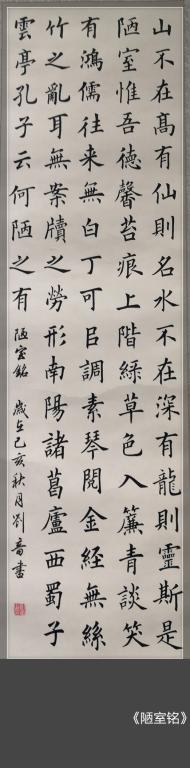 山不在高有仙則名水不在深有龍則靈斯是
陋室惟吾德馨苔痕上階綠草色入簾青談笑
有鴻儒往来無白丁可㠯調素琴閱金經無絲
竹之亂耳無案牘之勞形南陽諸葛廬西蜀子
雲亭孔子云何陋之有
陋室銘 歲在己亥秋月劉音書
《陋室铭》